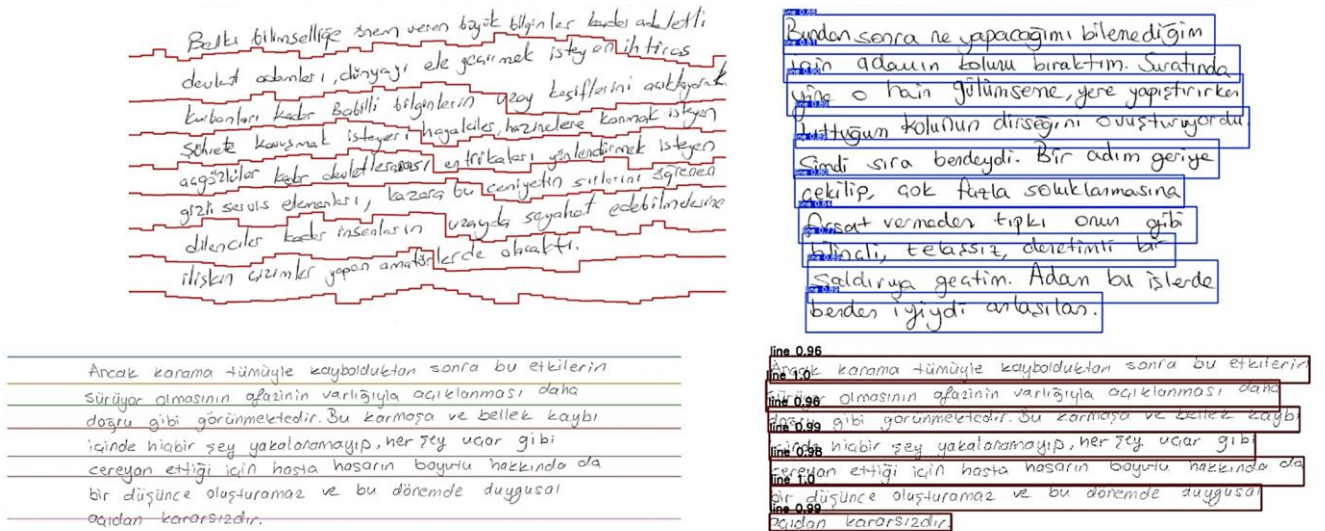 Belki bilimselliğe önem veren büyük bilginler kadar adaletli
devlet adamları, dünyayı ele geçirmek isteyen ihtiras
kurbanları kadar Babilli bilginlerin uzay keşiflerini açıklayarak
şöhrete kavuşmak isteyen hayalciler, hazinelere konmak isteyen
açgözlüler kadar devletlerarası entrikaları yönlendirmek isteyen
gizli servis elemanları, kazara bu cemiyetin sırlarını öğrenen
dilenciler kadar insanların uzayda seyahat edebilmelerine
ilişkin çizimler yapan amatörlerde olacaktı.
Bundan sonra ne yapacağımı bilemediğim
için adamın kolunu bıraktım. Suratında
yine o hain gülümseme, yere yapıştırırken
tuttuğum kolunun dirseğini ovuşturuyordu.
Şimdi sıra bendeydi. Bir adım geriye
çekilip, çok fazla soluklanmasına
fırsat vermeden tıpkı onun gibi
bilinçli, telaşsız, denetimli bir
saldırıya geçtim. Adam bu işlerde
benden iyiydi anlaşılan.
Ancak karama tümüyle kaybolduktan sonra bu etkilerin
sürüyor olmasının afazinin varlığıyla açıklanması daha
doğru gibi görünmektedir. Bu karmaşa ve bellek kaybı
içinde hiçbir şey yakalanamayıp, her şey uçar gibi
cereyan ettiği için hasta hasarın boyutu hakkında da
bir düşünce oluşturamaz ve bu dönemde duygusal
açıdan kararsızdır.
line 0.96
Ancak karama tümüyle kaybolduktan sonra bu etkilerin
line 1.0
sürüyor olmasının afazinin varlığıyla açıklanması daha
line 0.96
doğru gibi görünmektedir. Bu karmaşa ve bellek kaybı
line 0.99
içinde hiçbir şey yakalanamayıp, her şey uçar gibi
line 0.98
cereyan ettiği için hasta hasarın boyutu hakkında da
line 1.0
bir düşünce oluşturamaz ve bu dönemde duygusal
line 0.99
açıdan kararsızdır.